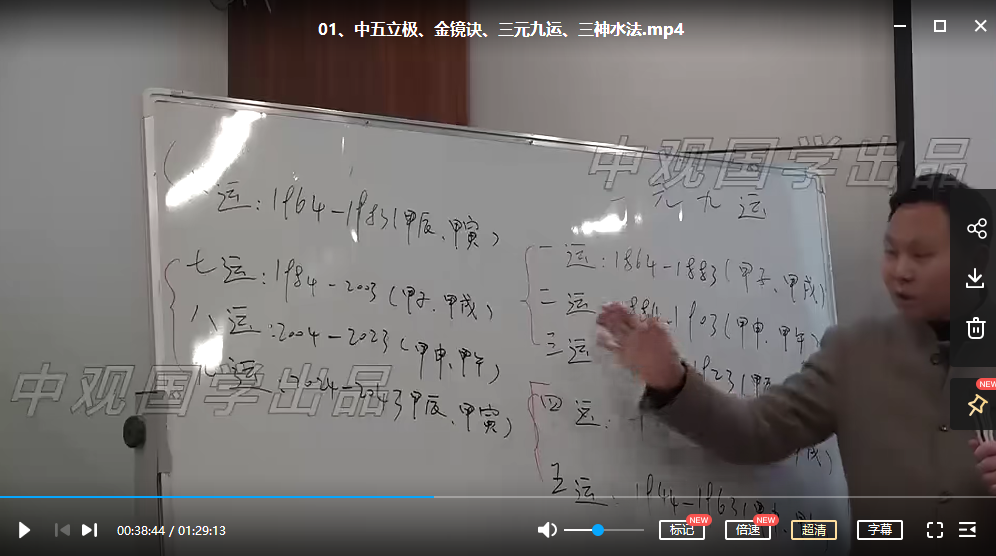 01、中五立极、金镜诀、三元九运、三神水法.mp4
中观国学出品
元九运
运:1964-1983(甲辰、甲寅)
七运:1984-2003(甲子、甲戌)
八运:2004-2023(甲申、甲午)
运:2024-2043甲辰、甲寅)
一运:1864-1883(甲子、甲戌)
二运 1884-1903(甲申、甲午)
三运 1923(甲
四运:
甲戌)
五运:1944-1963(甲
中观国学出品
NEW
00:38:44 / 01:29:13
标记
NEW
倍速
NEW
超清
字幕